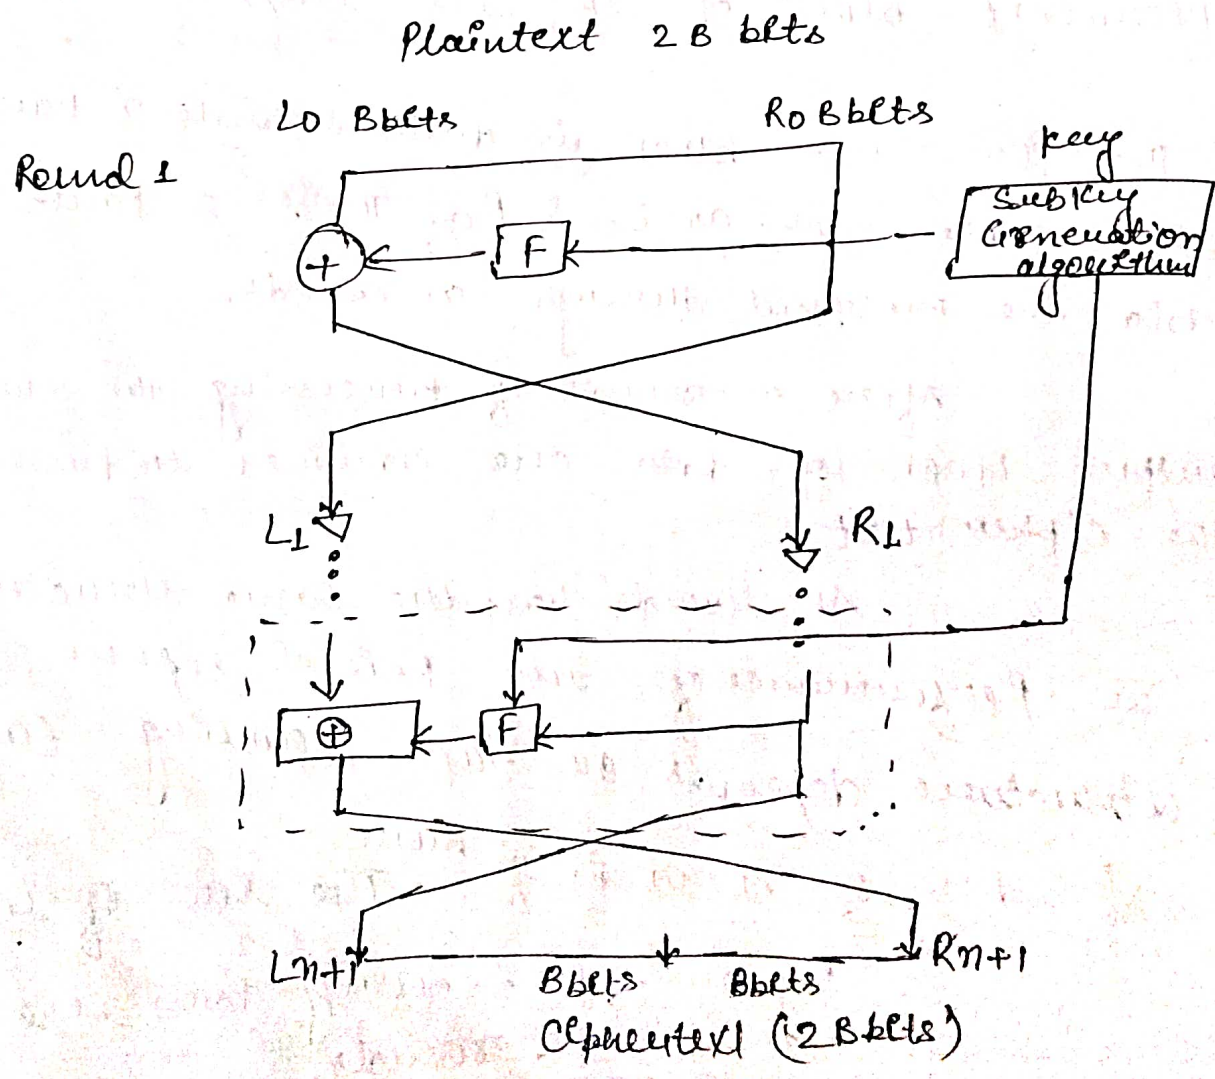 Plaintext 2B bits
L0 Bbits
R0 Bbits
key
Round 1
Subkey
Generation
algorithm
+
F
L1
R1
+
F
Ln+1
Rn+1
Bbits
Bbits
Ciphertext (2Bbits)